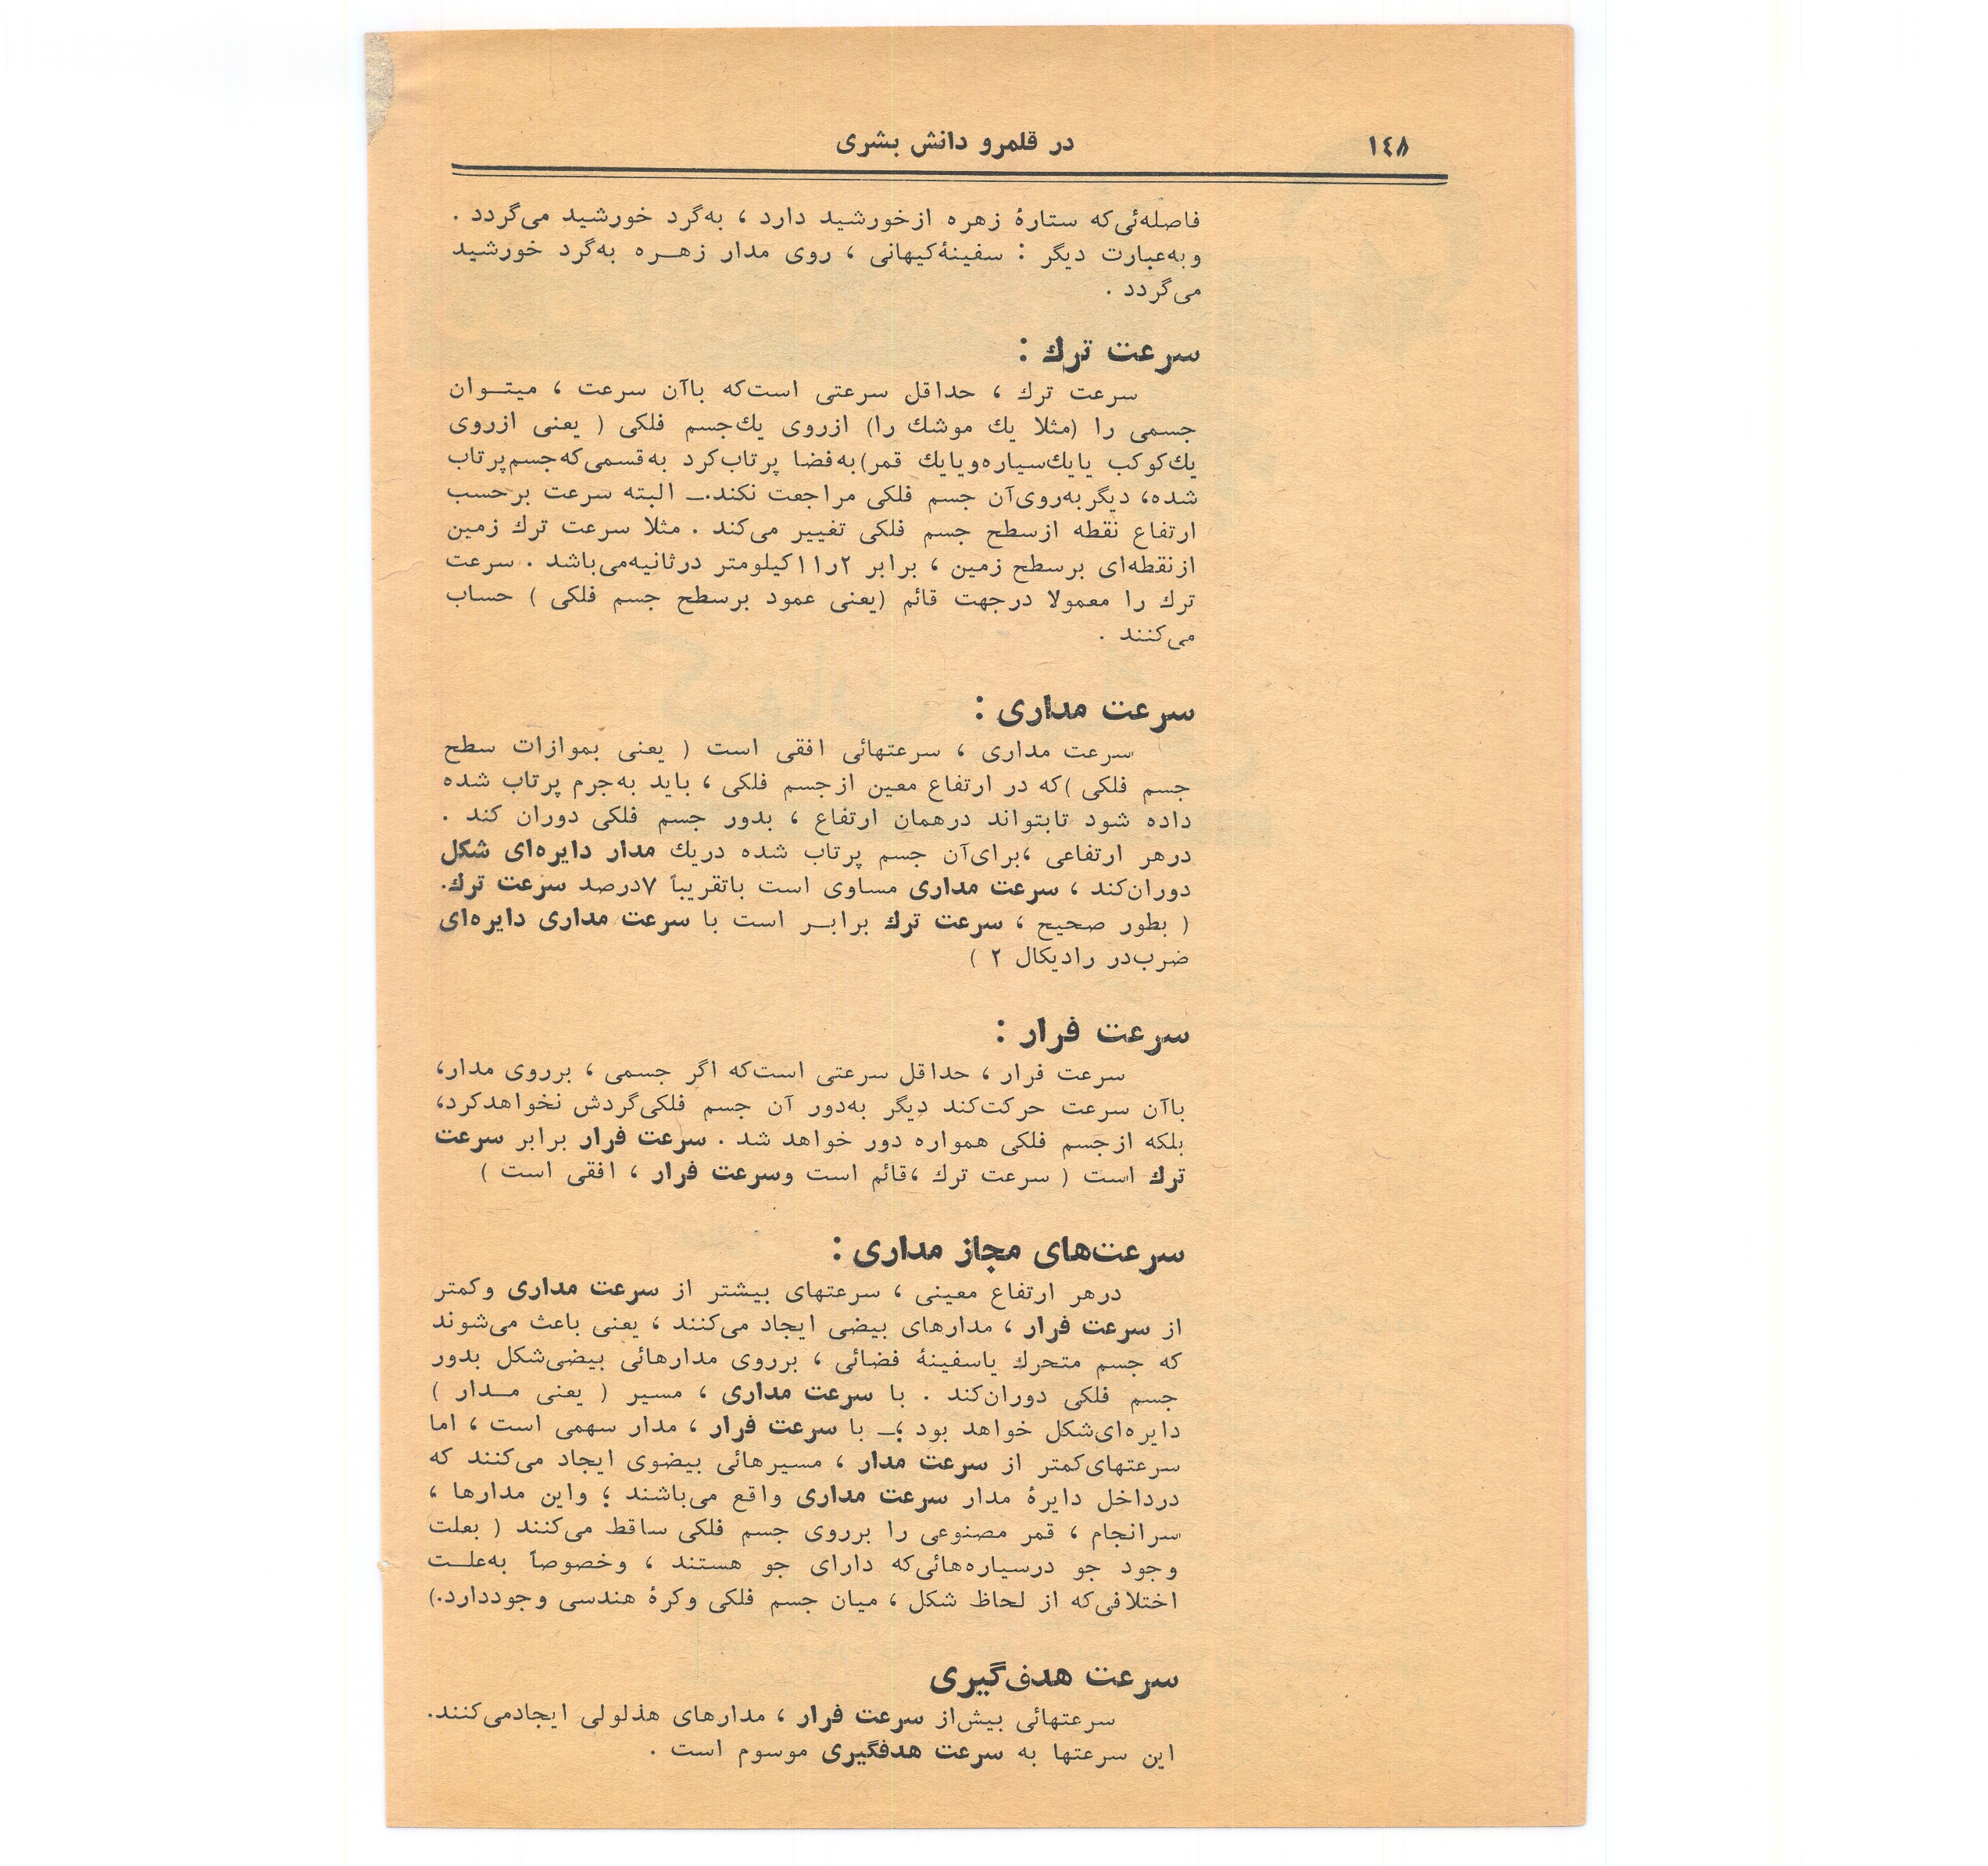 ١٤٨
در قلمرو دانش بشری
فاصله‌ئی‌که ستارهٔ زهره ازخورشید دارد ، به‌گرد خورشید می‌گردد .
وبه‌عبارت دیگر : سفینهٔ‌کیهانی ، روی مدار زهـره به‌گرد خورشید
می‌گردد .
سرعت ترك :
سرعت ترك ، حداقل سرعتی است‌که باآن سرعت ، میتـوان
جسمی را (مثلا یك موشك را) ازروی یك‌جسم فلکی ( یعنی ازروی
یك‌کوکب یایك‌سیاره‌ویایك قمر)به‌فضا پرتاب‌کرد به‌قسمی‌که‌جسم‌پرتاب
شده، دیگربه‌روی‌آن جسم فلکی مراجعت نکند.ـ البته سرعت برحسب
ارتفاع نقطه ازسطح جسم فلکی تغییر می‌کند . مثلا سرعت ترك زمین
ازنقطه‌ای برسطح زمین ، برابر ۲ر۱۱کیلومتر درثانیه‌می‌باشد . سرعت
ترك را معمولا درجهت قائم (یعنی عمود برسطح جسم فلکی ) حساب
می‌کنند .
سرعت مداری :
سرعت مداری ، سرعتهائی افقی است ( یعنی بموازات سطح
جسم فلکی )که در ارتفاع معین ازجسم فلکی ، باید به‌جرم پرتاب شده
داده شود تابتواند درهمان ارتفاع ، بدور جسم فلکی دوران کند .
درهر ارتفاعی ،برای‌آن جسم پرتاب شده دریك مدار دایره‌ای شکل
دوران‌کند ، سرعت مداری مساوی است باتقریباً ۷درصد سرعت ترك.
( بطور صحیح ، سرعت ترك برابـر است با سرعت مداری دایره‌ای
ضرب‌در رادیکال ۲ )
سرعت فرار :
سرعت فرار ، حداقل سرعتی است‌که اگر جسمی ، برروی مدار،
باآن سرعت حرکت‌کند دیگر به‌دور آن جسم فلکی‌گردش نخواهدکرد،
بلکه ازجسم فلکی همواره دور خواهد شد . سرعت فرار برابر سرعت
ترك است ( سرعت ترك ،قائم است وسرعت فرار ، افقی است )
سرعت‌های مجاز مداری :
درهر ارتفاع معینی ، سرعتهای بیشتر از سرعت مداری وکمتر
از سرعت فرار ، مدارهای بیضی ایجاد می‌کنند ، یعنی باعث می‌شوند
که جسم متحرك یاسفینهٔ فضائی ، برروی مدارهائی بیضی‌شکل بدور
جسم فلکی دوران‌کند . با سرعت مداری ، مسیر ( یعنی مـدار )
دایره‌ای‌شکل خواهد بود ؛ـ با سرعت فرار ، مدار سهمی است ، اما
سرعتهای‌کمتر از سرعت مدار ، مسیرهائی بیضوی ایجاد می‌کنند که
درداخل دایرهٔ مدار سرعت مداری واقع می‌باشند ؛ واین مدارها ،
سرانجام ، قمر مصنوعی را برروی جسم فلکی ساقط می‌کنند ( بعلت
وجود جو درسیاره‌هائی‌که دارای جو هستند ، وخصوصاً به‌علـت
اختلافی‌که از لحاظ شکل ، میان جسم فلکی وکرهٔ هندسی وجوددارد.)
سرعت هدف‌گیری
سرعتهائی بیش‌از سرعت فرار ، مدارهای هذلولی ایجادمی‌کنند.
این سرعتها به سرعت هدفگیری موسوم است .